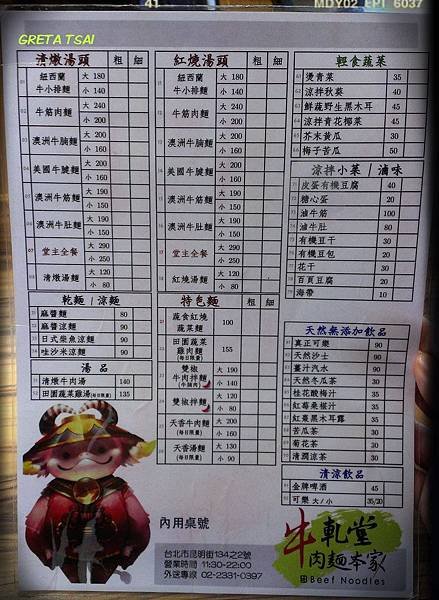 41
MDY02 EPT 6037
GRETA TSAI
清燉湯頭 粗 細
01 紐西蘭牛小排麵 大 180 小 140
02 牛筋肉麵 大 240 小 200
03 澳洲牛腩麵 大 200 小 160
04 美國牛腱麵 大 200 小 160
05 澳洲牛筋麵 大 190 小 150
06 澳洲牛肚麵 大 190 小 150
07 堂主全餐 大 290 小 250
08 清燉湯麵 大 120 小 80
紅燒湯頭 粗 細
紐西蘭牛小排麵 大 180 小 140
牛筋肉麵 大 240 小 200
澳洲牛腩麵 大 200 小 160
美國牛腱麵 大 200 小 160
澳洲牛筋麵 大 190 小 150
澳洲牛肚麵 大 190 小 150
堂主全餐 大 290 小 250
紅燒湯麵 大 120 小 80
乾麵 / 涼麵
麻醬麵 80
麻醬涼麵 90
日式柴魚涼麵 90
吐沙米涼麵 90
湯品
清燉牛肉湯 140
田園蔬菜雞湯(每日限量) 135
特色麵 粗 細
蔬食紅燒蔬菜麵 100
田園蔬菜雞肉麵 (每日限量) 155
雙椒牛肉拌麵 (每日限量) 大 190 小 140
雙椒拌麵 大 120 小 80
天香牛肉麵 (每日限量) 大 200 小 160
天香湯麵 (每日限量) 大 130 小 90
輕食蔬菜
燙青菜 35
涼拌秋葵 40
鮮蔬野生黑木耳 45
涼拌青花椰菜 45
芥末黃瓜 30
梅子苦瓜 50
涼拌小菜 / 滷味
皮蛋有機豆腐 40
糖心蛋 20
滷牛筋 100
滷牛肚 80
有機豆干 30
有機豆包 20
花干 30
百頁豆腐 20
海帶 10
天然無添加飲品
真正可樂 90
天然沙士 90
薑汁汽水 90
天然冬瓜茶 30
桂花酸梅汁 35
紅莓桑椹汁 35
紅棗黑木耳露 35
苦瓜茶 30
菊花茶 30
清潤涼茶 30
清涼飲品
金牌啤酒 45
可樂 大/小 35/20
內用桌號
台北市昆明街134之2號
營業時間 11:30-22:00
外送專線 02-2331-0397
牛軋堂
肉麵本家
Beef Noodles